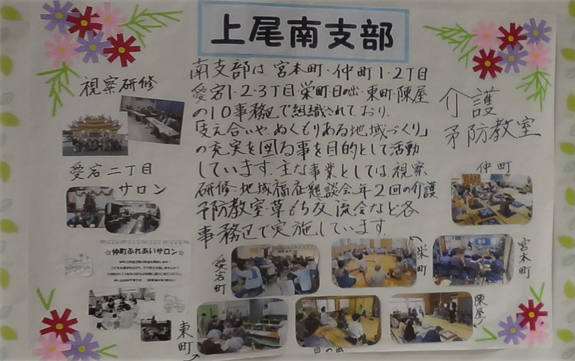 上尾南支部
南支部は宮本町・仲町1・2丁目
愛宕1・2・3丁目栄町日の出・東町・陣屋
の10事務区で組織されており、
「支え合いや、ぬくもりある地域づくり」
の充実を図る事を目的として活動
しています。主な事業としては視察
研修・地域福祉懇談会、年2回の介護
予防教室草もち交流会など各
事務区で実施しています。
視察研修
愛宕二丁目
サロン
☆仲町ふれあいサロン☆
介護
予防教室
仲町
愛宕町
栄町
宮本町
東町
日の出
陣屋